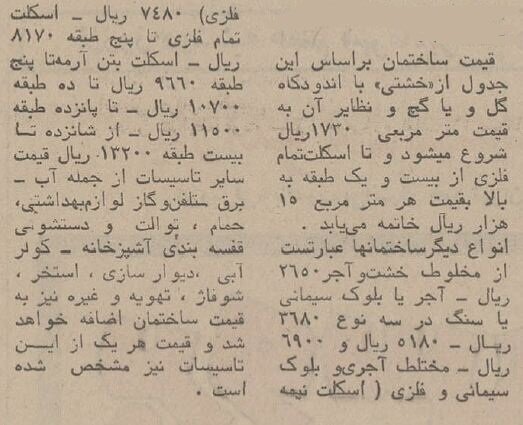 قیمت ساختمان براساس این
جدول از «خشتی» با اندودکاه
گل و یا گچ و نظایر آن به
قیمت متر مربعی ۱۷۳۰ریال
شروع میشود و تا اسکلت‌تمام
فلزی از بیست و یک طبقه به
بالا بقیمت هر متر مربع ۱۵
هزار ریال خاتمه می‌یابد .
انواع دیگرساختمانها عبارتست
از مخلوط خشت‌وآجر۲٦۵۰
ریال ــ آجر یا بلوک سیمانی
یا سنگ در سه نوع ۳٦۸۰
ریال ــ ۵۱۸۰ ریال و ٦۹۰۰
ریال ــ مختلط آجری‌و بلوک
سیمانی و فلزی ( اسکلت نیمه
فلزی) ۷٤۸۰ ریال ــ اسکلت
تمام فلزی تا پنج طبقه ۸۱۷۰
ریال ــ اسکلت بتن آرمه‌تا پنج
طبقه ۹٦٦۰ ریال تا ده طبقه
۱۰۷۰۰ ریال ــ تا پانزده طبقه
۱۱۵۰۰ ریال ــ از شانزده تا
بیست طبقه ۱۳۲۰۰ ریال قیمت
سایر تاسیسات از جمله آب ــ
برق ــتلفن‌وگاز لوازم‌بهداشتی،
حمام ، توالت و دستشوئی
قفسه بندی آشپزخانه ــ کولر
آبی ،دیوار سازی ، استخر ،
شوفاژ ، تهویه و غیره نیز به
قیمت ساختمان اضافه خواهد
شد و قیمت هر یک از ایــن
تاسیسات نیز مشخص شده
است .